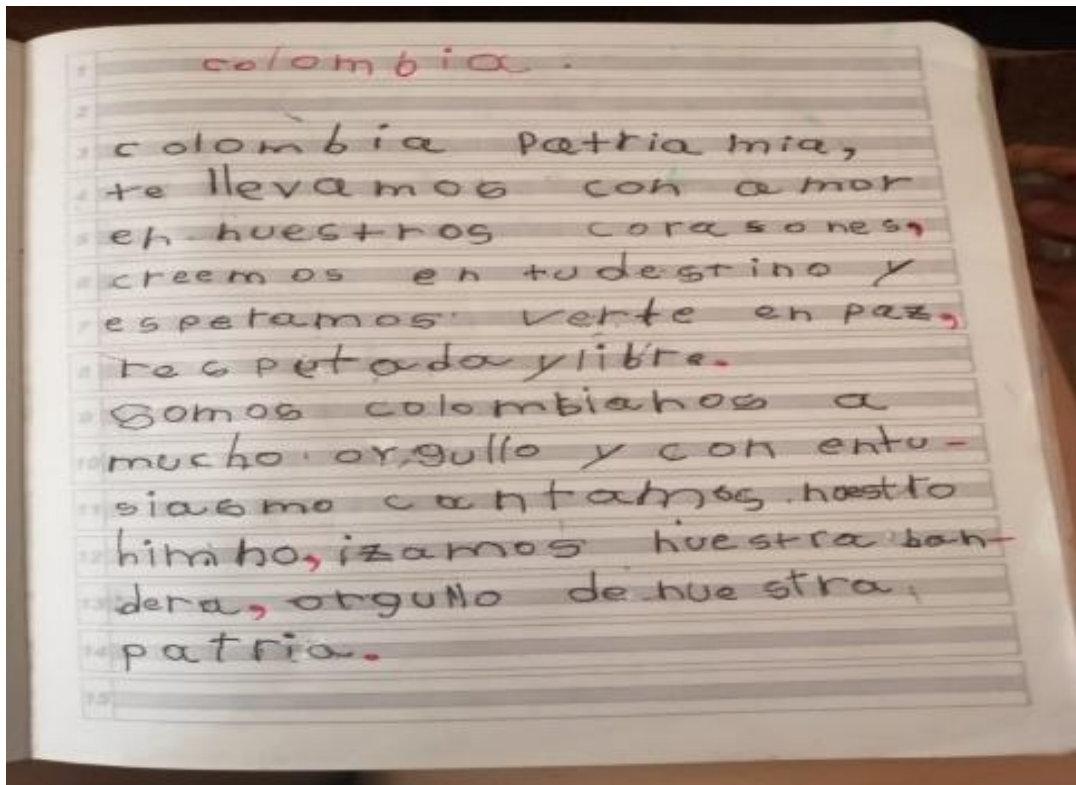 colombia.
colombia patria mia,
te llevamos con amor
en nuestros corasones,
creemos en tu destino y
esperamos verte en paz,
respetada y libre.
somos colombianos a
mucho orgullo y con entu-
siasmo cantamos nuestro
himno, izamos nuestra ban-
dera, orgullo de nuestra
patria.